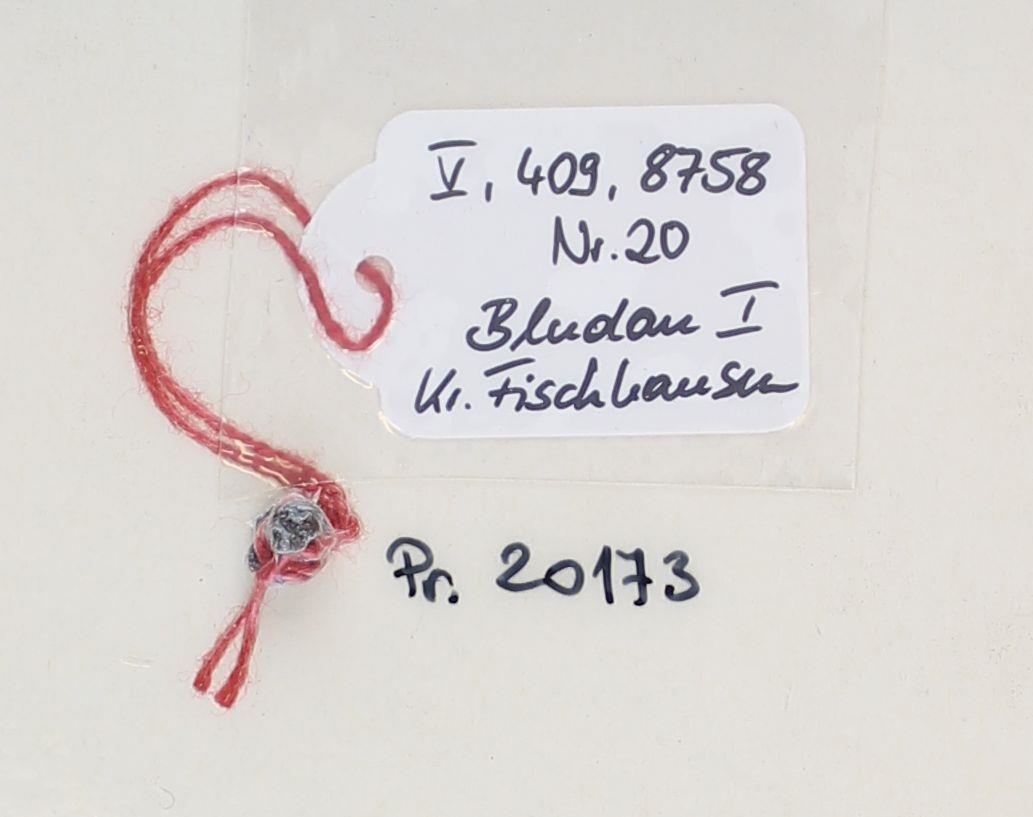 V, 409, 8758
Nr. 20
Bludau I
Kr. Fischhausen
Pr. 20173